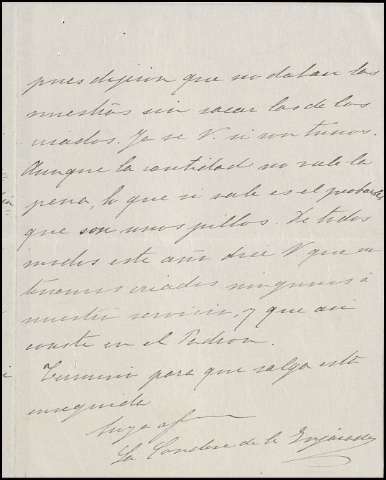 pues dijeron que no daban las
nuestras sin sacar las de los
criados. Ya ve V. si son tunos.
Aunque la cantidad no vale la
pena, lo que si vale es el probarles
que son unos pillos. De todos
modos este año dice V que no
tenemos criados ningunos á
nuestro servicio, y que asi
conste en el Padron.
Termino para que salga esta
enseguida
Suya af
La Condesa de la